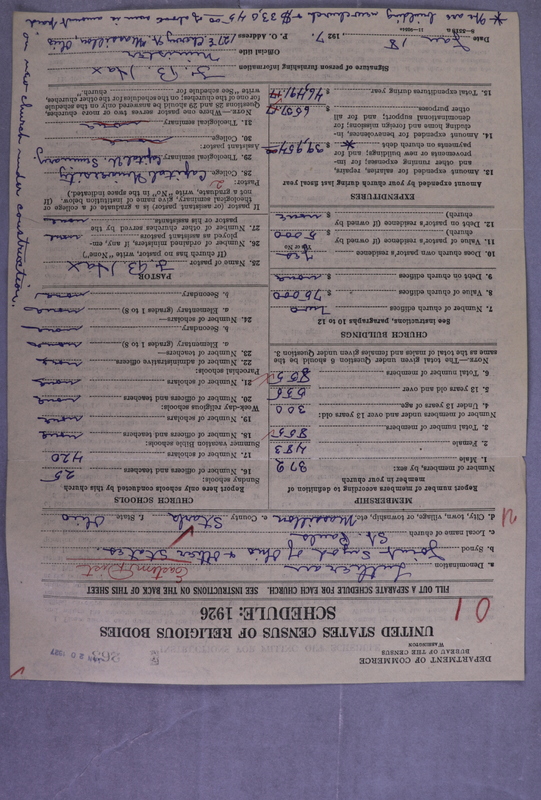 DEPARTMENT OF COMMERCE
BUREAU OF THE CENSUS
WASHINGTON
JAN 20 1927
UNITED STATES CENSUS OF RELIGIOUS BODIES
SCHEDULE: 1926
FILL OUT A SEPARATE SCHEDULE FOR EACH CHURCH, SEE INSTRUCTIONS ON THE BACK OF THIS SHEET
a. Denomination Lutheran Eastern Dist
b. Synod Joint Synod of Ohio & Other States.
c. Local name of church St. Pauls
d. City, town, village, or township, etc. Massillon e. County Stark f. State Ohio
MEMBERSHIP
Report number of members according to definition of member in your church
Number of members, by sex:
1. Male 372
2. Female 483
3. Total number of members 855
Number of members under and over 13 years old:
4. Under 13 years of age 300
5. 13 years old and over 555
6. Total number of members 855
NOTE.—The total given under Question 6 should be the same as the total of males and females given under Question 3.
CHURCH BUILDINGS
See instructions, paragraphs 10 to 12
7. Number of church edifices Two
8. Value of church edifices $ 75,000
9. Debt on church edifices $ none
10. Does church own pastor's residence Yes
Yes or No
11. Value of pastor's residence (if owned by church) $ 5000
12. Debt on pastor's residence (if owned by church) $ none
EXPENDITURES
Amount expended by your church during last fiscal year
13. Amount expended for salaries, repairs, and other running expenses; for improvements or new buildings; and for payments on church debt *
14. Amount expended for benevolences, including home and foreign missions; for denominational support; and for all other purposes
15. Total expenditures during year
CHURCH SCHOOLS
Report here only schools conducted by this church
Sunday schools:
16. Number of officers and teachers 25
17. Number of scholars 420
Summer vacation Bible schools:
18. Number of officers and teachers none
19. Number of scholars none
Week-day religious schools:
20. Number of officers and teachers none
21. Number of scholars none
Parochial schools:
22. Number of administrative officers none
23. Number of teachers—
a. Elementary (grades 1 to 8) none
b. Secondary none
24. Number of scholars—
a. Elementary (grades 1 to 8) none
b. Secondary none
PASTOR
25. Name of pastor
(If church has no pastor write "None")
26. Number of ordained ministers, if any, employed as assistants to pastor none
27. Number of other churches served by the pastor or his assistants none
If pastor (or assistant pastor) is a graduate of a college or theological seminary, give name of institution below. (If not a graduate, write "No," in the space indicated.)
Pastor:
28. College Capital University
29. Theological seminary Capital U. Seminary
Assistant pastor:
30. College
31. Theological seminary
NOTE.—Where one pastor serves two or more churches, Questions 28 and 29 should be answered only on the schedule for one of the churches; on the schedules for the other churches, write "See schedule for church."
Signature of person furnishing information
Official title Minister
Date Jan 18, 1927. P. O. Address Massillon, Ohio
* We are building new church & of above sum is amount paid
on new church under construction.